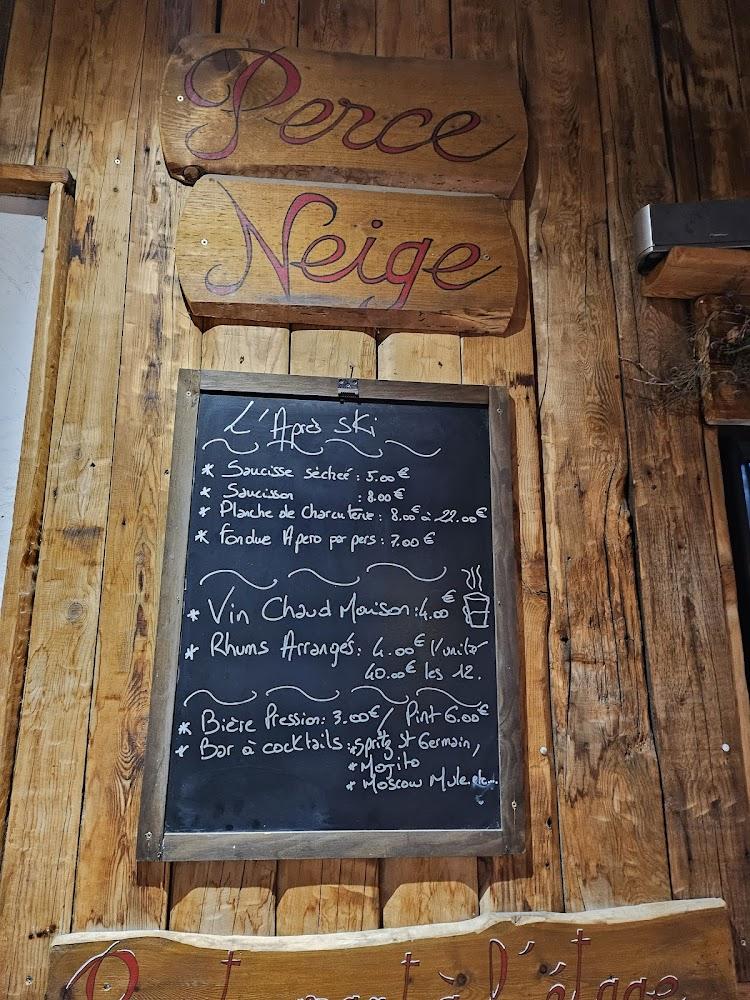 Perce
Neige
L'Après Ski
* Saucisse séchée : 5.00€
* Saucisson : 8.00€
* Planche de Charcuterie : 8.00€ à 22.00€
* Fondue Apero par pers : 7.00€
* Vin Chaud Maison : 4.00€
* Rhums Arrangés : 4.00€ l'unité
40.00€ les 12.
* Bière Pression : 3.00€ / Pint 6.00€
* Bar à cocktails : * Spritz St Germain,
* Mojito
* Moscow Mule. etc...
à l'étage